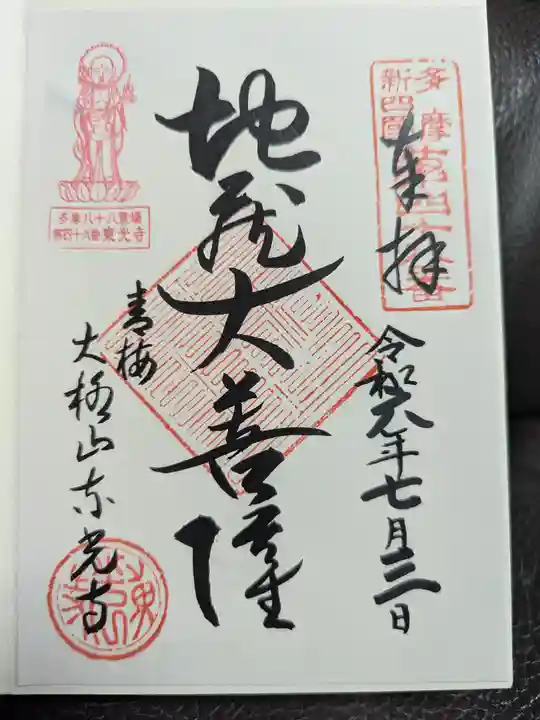 多摩
新四国
奉拝
令和六年七月三日
地蔵大菩薩
多摩八十八霊場
第四十九番東光寺
青梅
大柳山東光寺